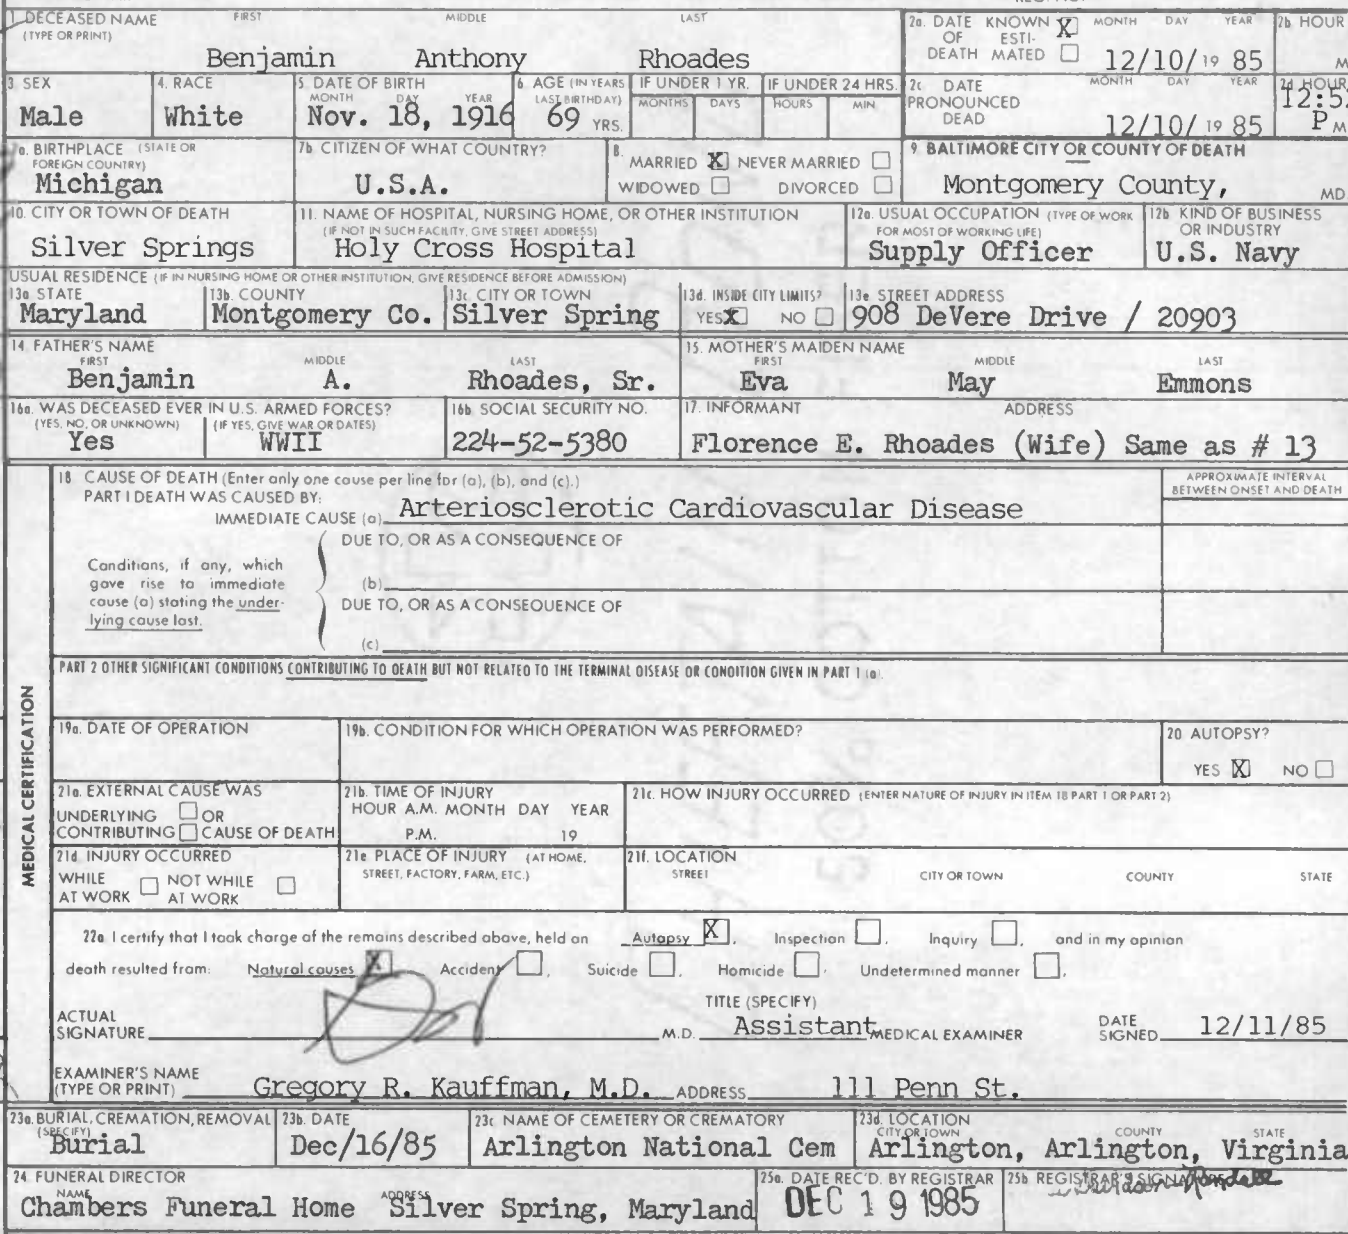 1. DECEASED NAME FIRST MIDDLE LAST
(TYPE OR PRINT)
Benjamin Anthony Rhoades
2a. DATE KNOWN X MONTH DAY YEAR
OF ESTI-
DEATH MATED
12/10/19 85
2b. HOUR
M
3 SEX
Male
4. RACE
White
5. DATE OF BIRTH
MONTH DAY YEAR
Nov. 18, 1916
6. AGE (IN YEARS
LAST BIRTHDAY)
69 YRS.
IF UNDER 1 YR.
MONTHS DAYS
IF UNDER 24 HRS.
HOURS MIN
2c DATE MONTH DAY YEAR
PRONOUNCED
DEAD
12/10/19 85
2d HOUR
12:5
P M
7a. BIRTHPLACE (STATE OR
FOREIGN COUNTRY)
Michigan
7b CITIZEN OF WHAT COUNTRY?
U.S.A.
8.
MARRIED X NEVER MARRIED
WIDOWED DIVORCED
9. BALTIMORE CITY OR COUNTY OF DEATH
Montgomery County, MD
10. CITY OR TOWN OF DEATH
Silver Springs
11. NAME OF HOSPITAL, NURSING HOME, OR OTHER INSTITUTION
(IF NOT IN SUCH FACILITY, GIVE STREET ADDRESS)
Holy Cross Hospital
12a. USUAL OCCUPATION (TYPE OF WORK
FOR MOST OF WORKING LIFE)
Supply Officer
12b. KIND OF BUSINESS
OR INDUSTRY
U.S. Navy
USUAL RESIDENCE (IF IN NURSING HOME OR OTHER INSTITUTION, GIVE RESIDENCE BEFORE ADMISSION)
13a STATE
Maryland
13b. COUNTY
Montgomery Co.
13c. CITY OR TOWN
Silver Spring
13d. INSIDE CITY LIMITS?
YES X NO
13e STREET ADDRESS
908 DeVere Drive / 20903
14. FATHER'S NAME
FIRST MIDDLE LAST
Benjamin A. Rhoades, Sr.
15. MOTHER'S MAIDEN NAME
FIRST MIDDLE LAST
Eva May Emmons
16a. WAS DECEASED EVER IN U.S. ARMED FORCES?
(YES, NO, OR UNKNOWN) (IF YES, GIVE WAR OR DATES)
Yes WWII
16b SOCIAL SECURITY NO.
224-52-5380
17. INFORMANT ADDRESS
Florence E. Rhoades (Wife) Same as # 13
MEDICAL CERTIFICATION
18 CAUSE OF DEATH (Enter only one cause per line for (a), (b), and (c).)
PART I DEATH WAS CAUSED BY:
IMMEDIATE CAUSE (a) Arteriosclerotic Cardiovascular Disease
APPROXIMATE INTERVAL
BETWEEN ONSET AND DEATH
DUE TO, OR AS A CONSEQUENCE OF
Conditions, if any, which
gave rise to immediate
cause (a) stating the under-
lying cause last.
(b)
DUE TO, OR AS A CONSEQUENCE OF
(c)
PART 2 OTHER SIGNIFICANT CONDITIONS CONTRIBUTING TO DEATH BUT NOT RELATED TO THE TERMINAL DISEASE OR CONDITION GIVEN IN PART 1 (a).
19a. DATE OF OPERATION
19b. CONDITION FOR WHICH OPERATION WAS PERFORMED?
20 AUTOPSY?
YES X NO
21a. EXTERNAL CAUSE WAS
UNDERLYING OR
CONTRIBUTING CAUSE OF DEATH
21b. TIME OF INJURY
HOUR A.M. MONTH DAY YEAR
P.M. 19
21c. HOW INJURY OCCURRED (ENTER NATURE OF INJURY IN ITEM 18 PART 1 OR PART 2)
21d. INJURY OCCURRED
WHILE NOT WHILE
AT WORK AT WORK
21e PLACE OF INJURY (AT HOME,
STREET, FACTORY, FARM, ETC.)
21f. LOCATION
STREET CITY OR TOWN COUNTY STATE
22a I certify that I took charge of the remains described above, held an Autopsy X, Inspection , Inquiry , and in my opinion
death resulted from: Natural causes X, Accident , Suicide , Homicide , Undetermined manner ,
TITLE (SPECIFY)
ACTUAL
SIGNATURE M.D. Assistant MEDICAL EXAMINER
DATE
SIGNED 12/11/85
EXAMINER'S NAME
(TYPE OR PRINT) Gregory R. Kauffman, M.D. ADDRESS 111 Penn St.
23a. BURIAL, CREMATION, REMOVAL
(SPECIFY)
Burial
23b. DATE
Dec/16/85
23c NAME OF CEMETERY OR CREMATORY
Arlington National Cem
23d. LOCATION
CITY OR TOWN COUNTY STATE
Arlington, Arlington, Virginia
24 FUNERAL DIRECTOR
NAME ADDRESS
Chambers Funeral Home Silver Spring, Maryland
25a. DATE REC'D. BY REGISTRAR
DEC 19 1985
25b REGISTRAR'S SIGNATURE